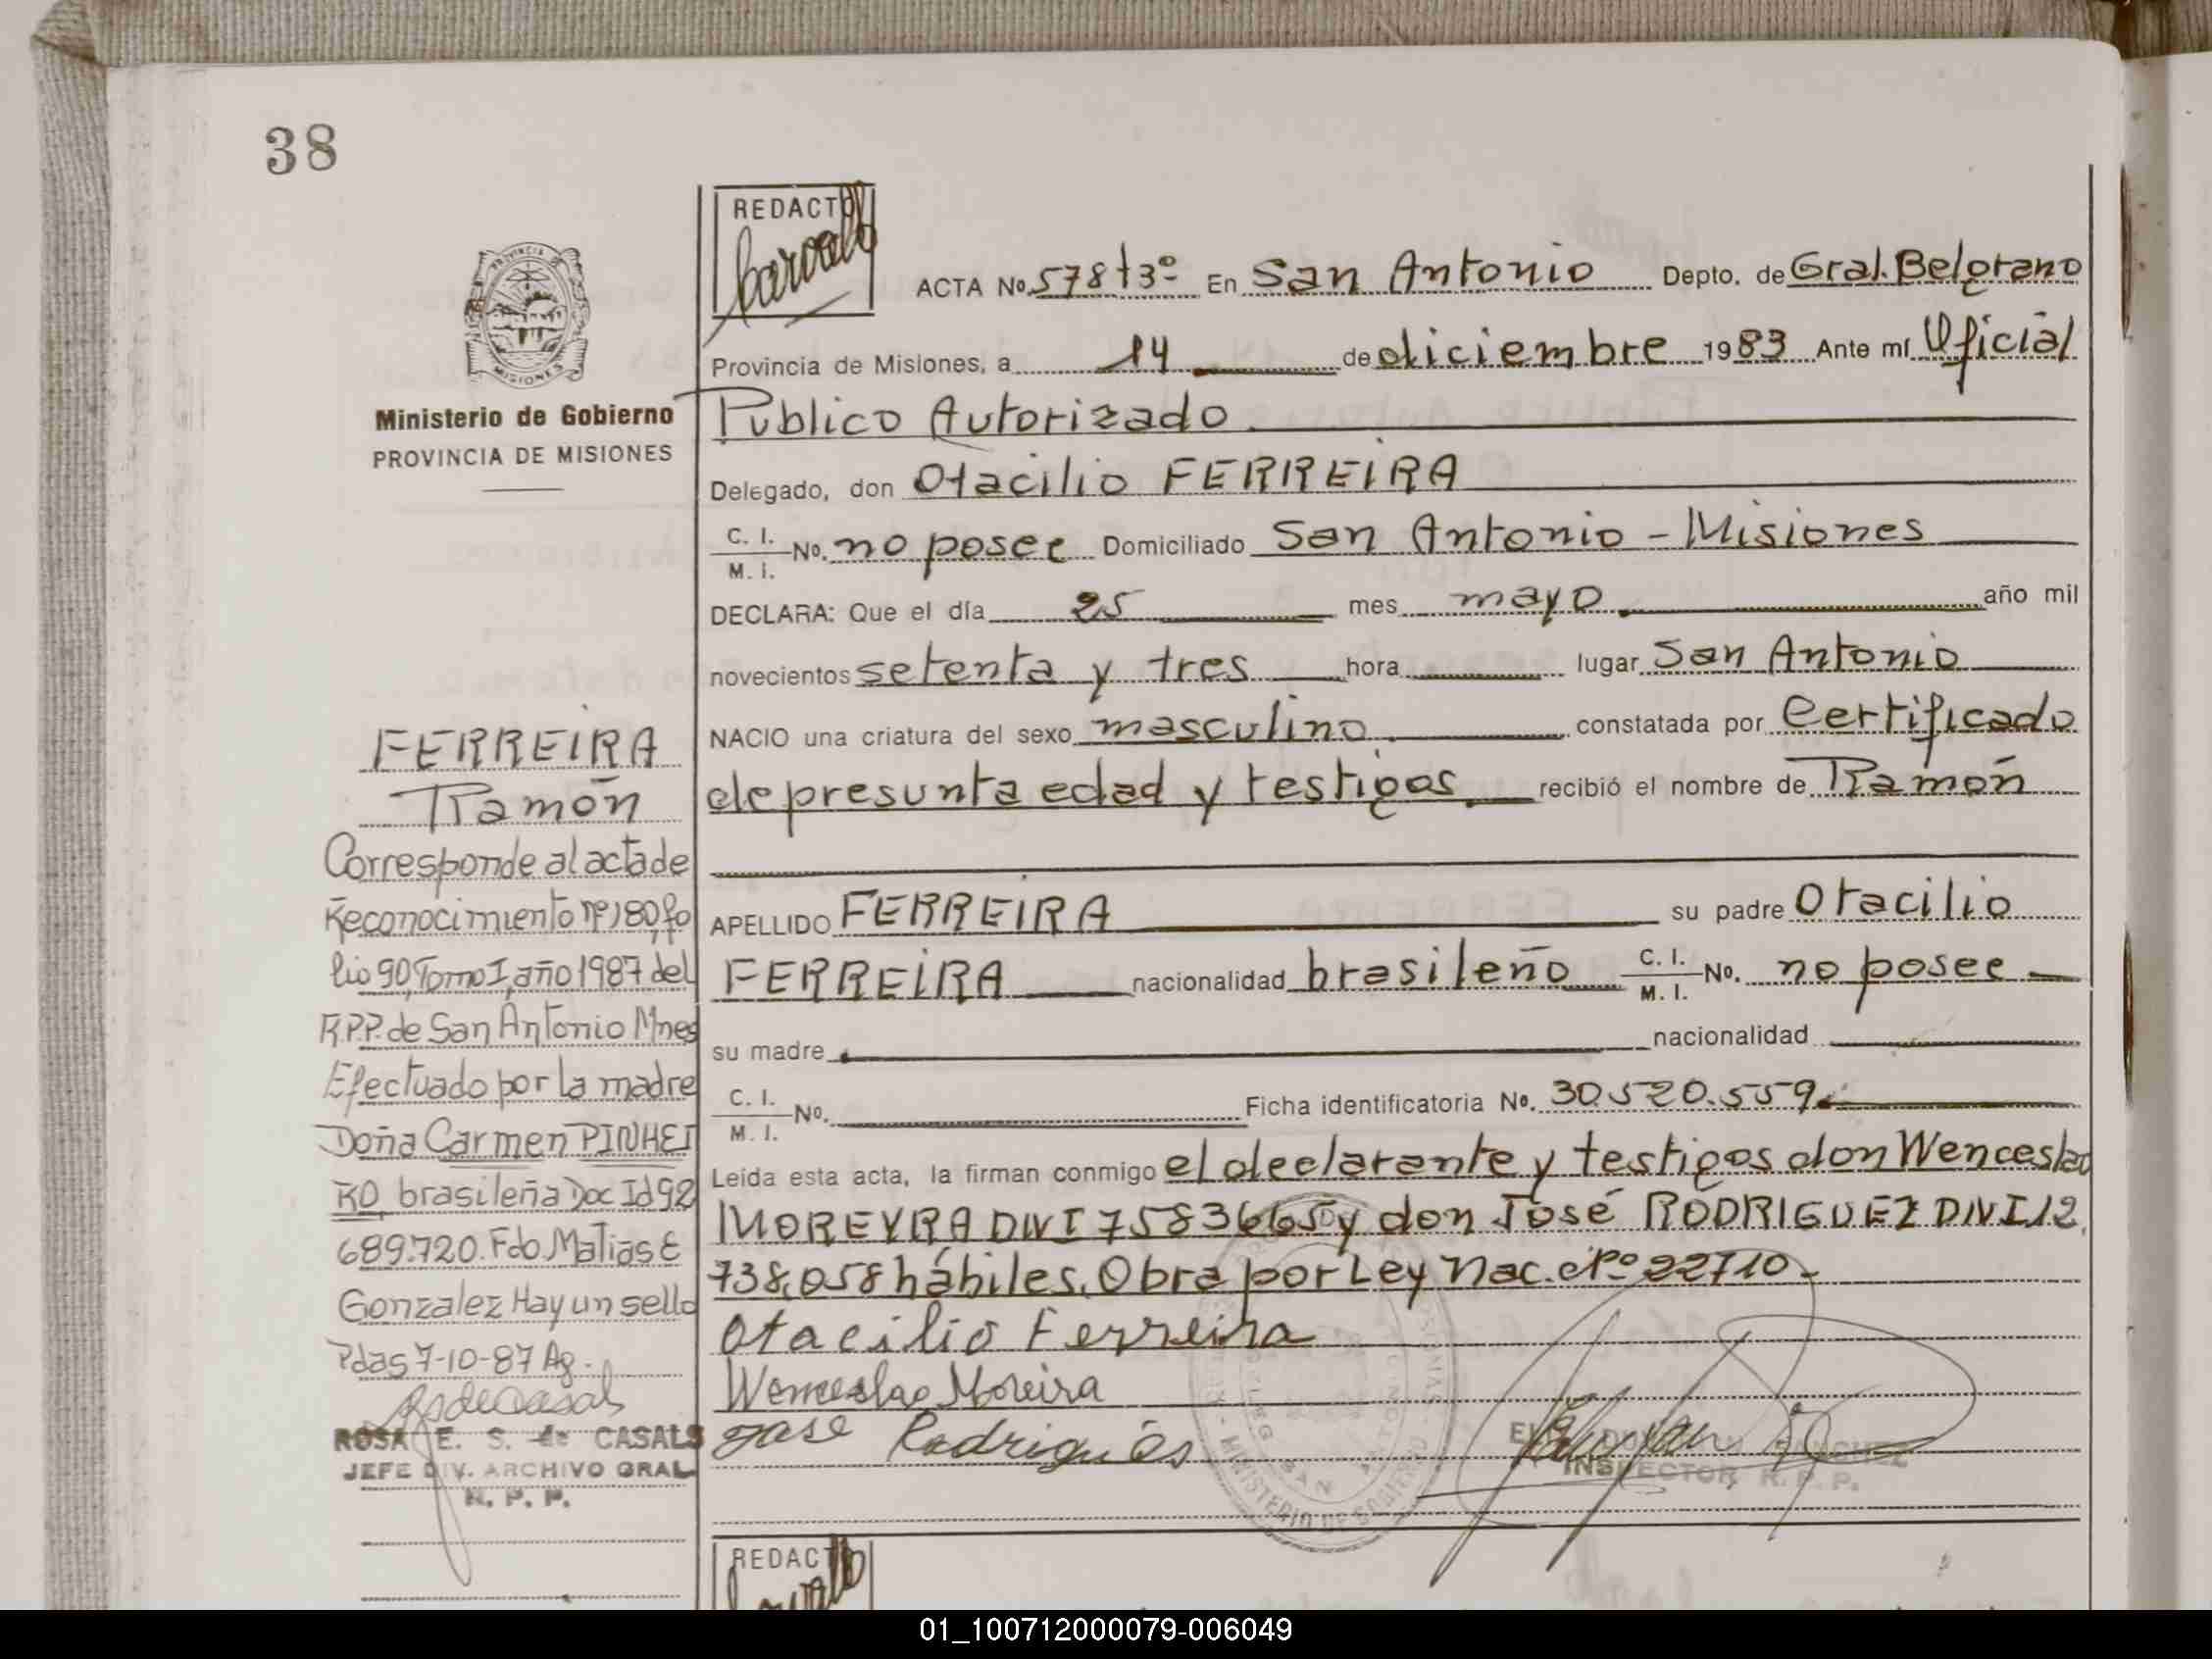 38
REDACTO
ACTA No. 578 t3º En San Antonio Depto. de Gral. Belgrano
Provincia de Misiones, a 14 de diciembre 1983 Ante mí Oficial
Publico Autorizado
Delegado, don Otacilio FERREIRA
C. I. / M. I. No. no posee Domiciliado San Antonio - Misiones
DECLARA: Que el día 25 mes mayo año mil
novecientos setenta y tres hora lugar San Antonio
NACIO una criatura del sexo masculino constatada por Certificado
de presunta edad y testigos recibió el nombre de Ramón
APELLIDO FERREIRA su padre Otacilio
FERREIRA nacionalidad brasileño C. I. / M. I. No. no posee
su madre nacionalidad
C. I. / M. I. No. Ficha identificatoria No. 30.520.559
Leída esta acta, la firman conmigo el declarante y testigos don Wenceslao
MOREYRA DNI 7583665 y don José RODRIGUEZ DNI 12.
738.058 hábiles. Obra por Ley Nac. Nº 22710.
Otacilio Ferreira
Wenceslao Moreira
Jose Rodrigués
INSPECTOR R. P. P.
MINISTERIO DE GOBIERNO
PROVINCIA DE
MISIONES
Ministerio de Gobierno
PROVINCIA DE MISIONES
FERREIRA
Ramón
Corresponde al acta de
Reconocimiento nº 180, fo
lio 90, Tomo I, año 1987 del
R.P.P. de San Antonio Mnes
Efectuado por la madre
Doña Carmen PINHEI
RO, brasileña Doc Id 92
689.720. Fdo. Matias E
Gonzalez Hay un sello
Pdas 7-10-87 Ag.
ROSA E. S. de CASALS
JEFE DIV. ARCHIVO GRAL
R. P. P.
REDACTO
01_100712000079-006049